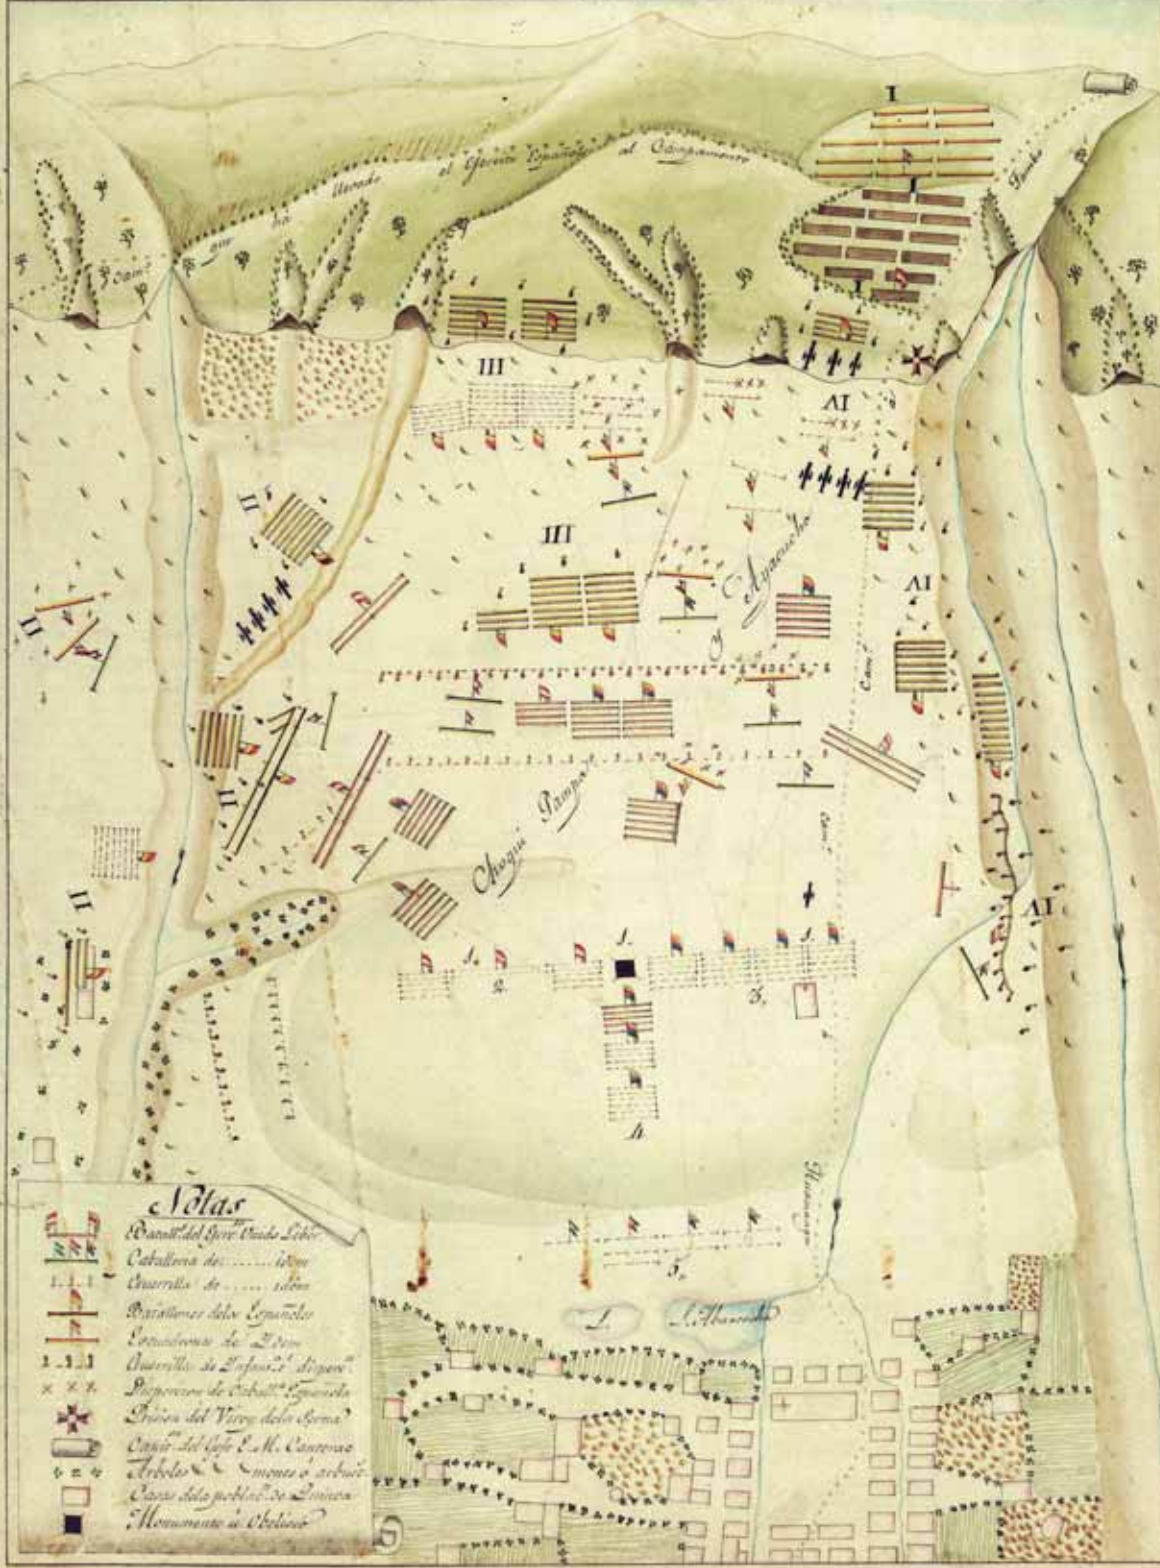 I
que ha llevado el Ejercito Español al Campamento
Tambo
Cam.º
III
IV
II
III
Ayacucho
IV
II
Cam.º
II
Pampa
Cam.º
Chaqui
II
IV
1.
1.
2.
3.
4.
Huamanga
5.
L.
L.
Notas
Batall.s del Ejer.to Unido Liber.
Caballeria de ...... idem
Guerrilla de ...... idem
Batallones de los Españoles
Escuadrones de Idem
Guerrilla de Infant.a dispers.
Dispercion de Caball.a Española
Pricion del Virey de la Serna
Cap.n del Gefe E. M. Canterac
Arboles montes ó arbust.
Casas dela poblac. de Quinua
Monumento ú Obelisco